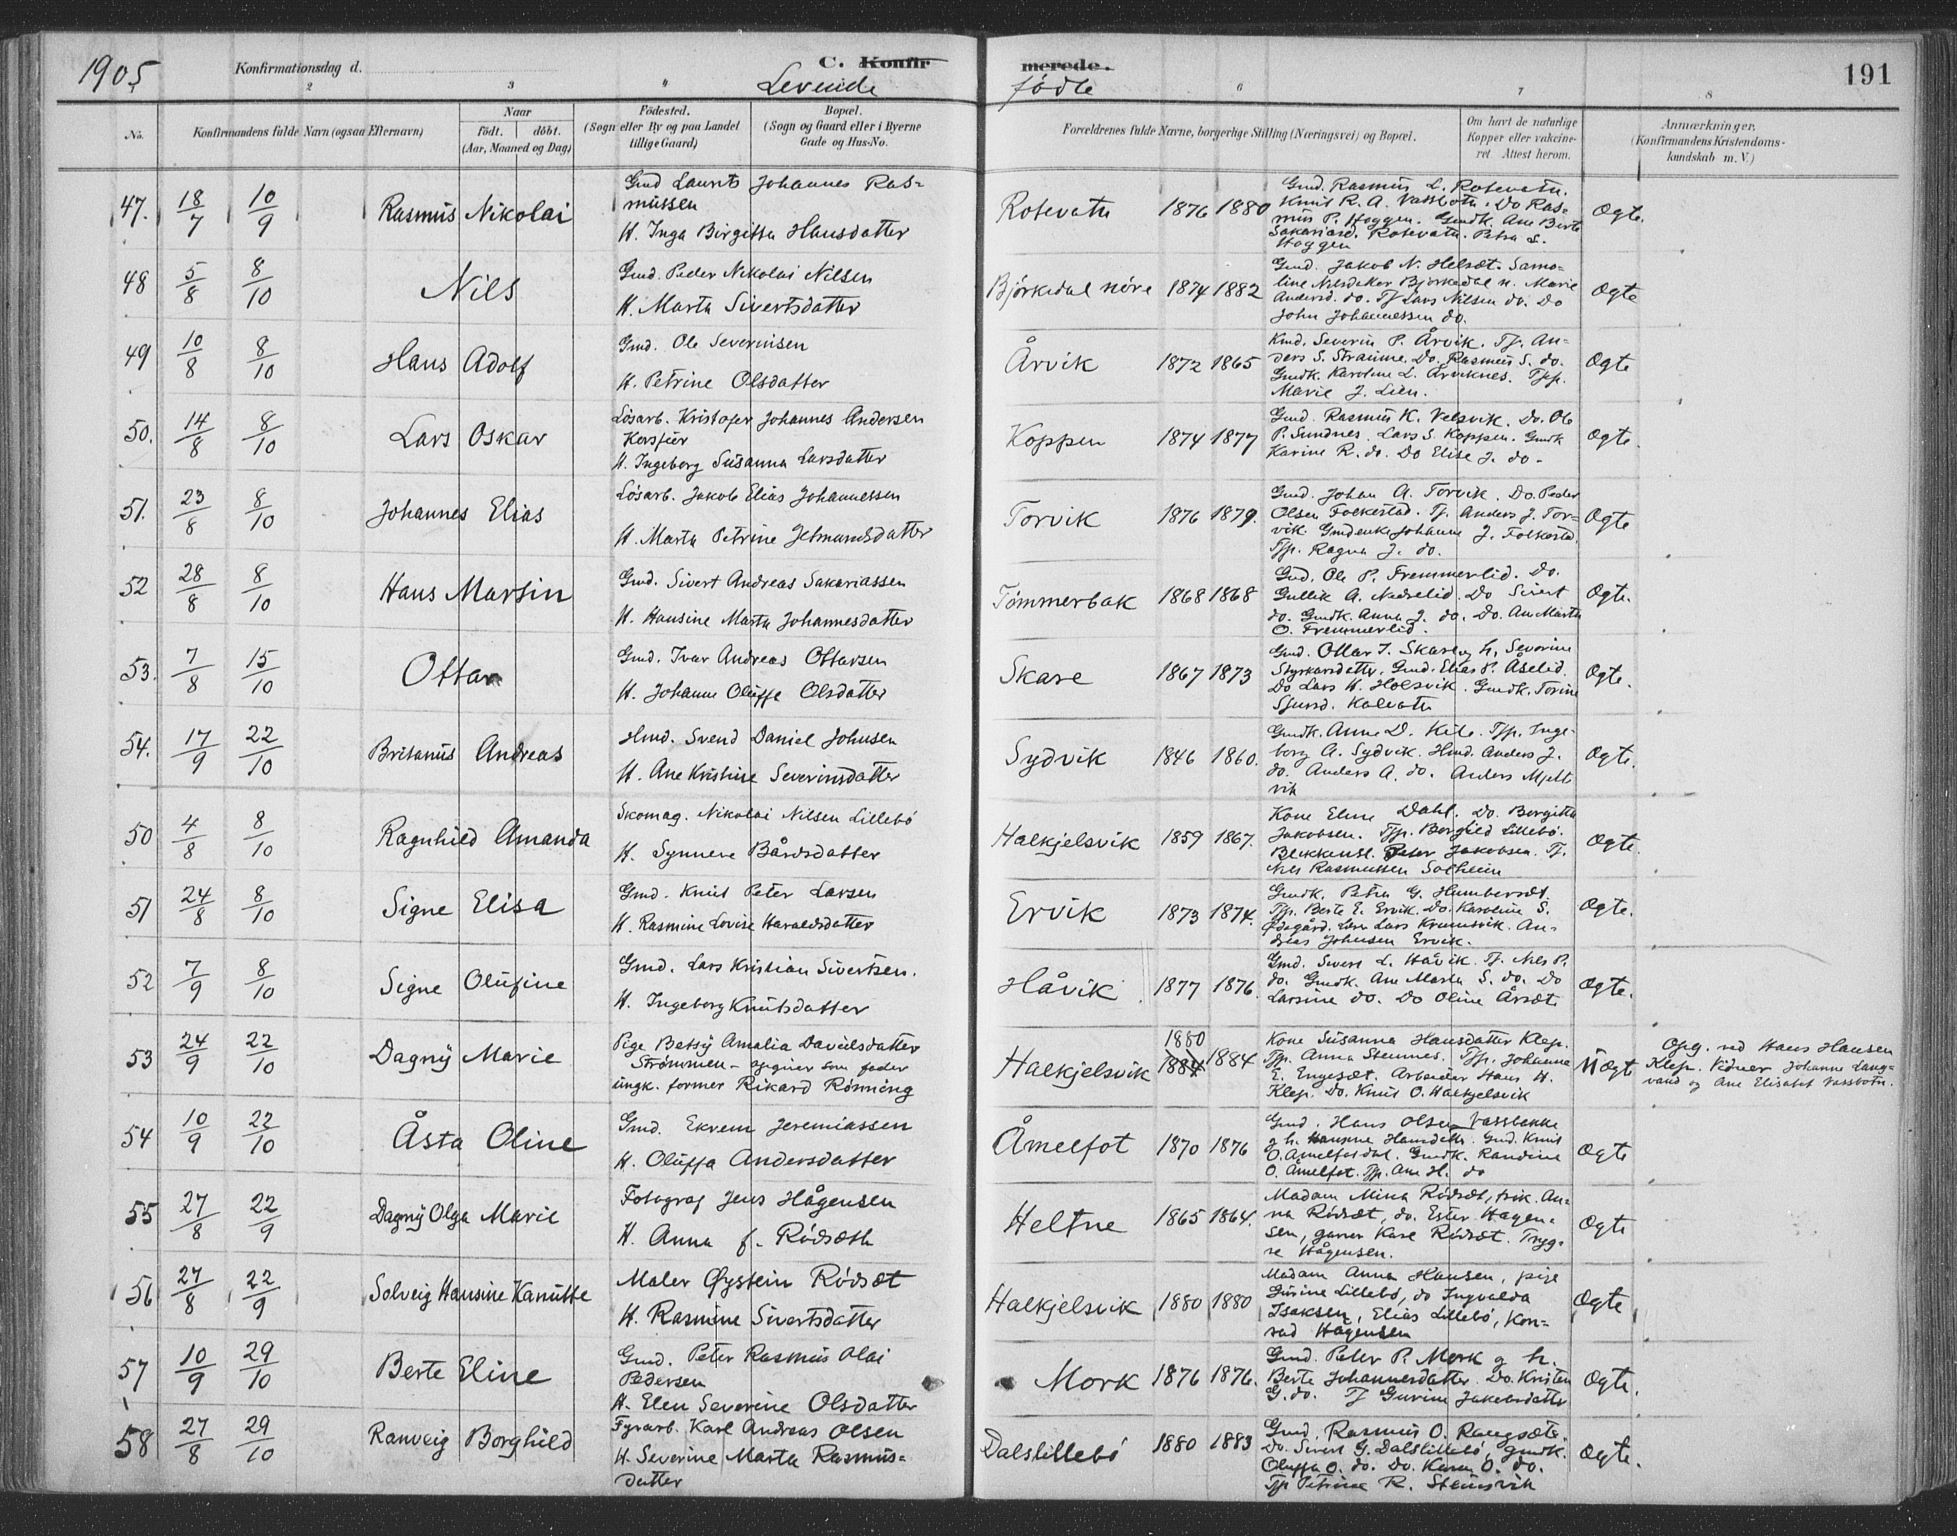 1905 Konfirmationsdag d. C. Konfir merede. 191
Levende fødte
2 3 4 6 7 8
No. Konfirmandens fulde Navn (ogsaa Efternavn) Naar født. døbt. (Aar, Maaned og Dag) Fødested. (Sogn eller By og paa Landet tillige Gaard) Bopæl. (Sogn og Gaard eller i Byerne Gade og Hus-No. Forældrenes fulde Navne, borgerlige Stilling (Næringsvei) og Bopæl. Om havt de naturlige Kopper eller vakcineret Attest herom. Anmærkninger. (Konfirmandens Kristendomskundskab m. V.)
47. 18/7 10/9 Rasmus Nikolai
Gmd Laurits Johannes Ras-
mussen
H. Inga Birgitta Hansdatter
Rotevatn 1876 1880
Gmd. Rasmus L. Rotevatn.
Knut R. A. Vassbotn. Do Ras-
mus P. Hoggen. Gmdk. Ane Berte
Sakariasd. Rotevatn. Petra L.
Hoggen
Ægte.
48 5/8 8/10 Nils
Gmd. Peder Nikolai Nilsen
H. Marta Sivertsdatter
Bjørkedal nøre 1874 1882
Gmd. Jakob N. Helset. Samo-
line Nilsdatter Bjørkedal n. Marie
Andersd. do. Tj Lars Nilsen do. Do
John Johannessen do.
Ægte
49 10/8 8/10 Hans Adolf
Gmd. Ole Severinsen
H. Petrine Olsdatter
Årvik 1872 1865
Kmd. Severin P. Årvik. Tj. An-
ders S. Straume. Do. Rasmus S. do.
Gmdk. Karoline L. Årviknes. Tjp.
Marie J. Lien.
Ægte
50. 14/8 8/10 Lars Oskar
Løsarb. Kristofer Johannes Andersen
Korsfur
H. Ingeborg Susanna Larsdatter
Koppen 1874 1877
Gmd. Rasmus K. Velsvik. Do. Ole
P. Sundnes. Lars S. Koppen. Gmdk
Karine R. do. Do Elise J. do.
Ægte.
51. 23/8 8/10 Johannes Elias
Løsarb. Jakob Elias Johannessen
H. Marta Petrine Jetmundsdatter
Torvik 1876 1879.
Gmd. Johan A. Torvik. Do. Peder
Olsen Folkestad. Tj. Anders J. Tor-
vik. Gmdenke Johanne J. Folkestad.
Tjp. Ragna J. do.
Ægte
52 28/8 8/10 Hans Martin
Gmd. Sivert Andreas Sakariassen
H. Hansine Marta Johannesdatter
Tømmerbak 1868 1868
Gmd. Ole P. Fremmerlid. Do.
Gullik A. Nedrelid. Do Sivert
do. Gmdk. Anna J. do. Do. Ane Marta
O. Fremmerlid.
Ægte.
53. 7/8 15/10 Ottar
Gmd. Ivar Andreas Ottarsen
H. Johanne Oluffe Olsdatter
Skare 1867 1873
Gmd. Ottar I. Skare og h. Severine
Styrkarsdatter. Gmd. Elias P. Åselid.
Do Lars H. Holsvik. Gmdk. Torine
Sjursd. Kalvatn
Ægte.
54. 17/9 22/10 Britanus Andreas
Hmd. Svend Daniel Johnsen
H. Ane Kristine Severinsdatter
Sydvik 1846 1860.
Gmdk. Anne D. Kile. Tjp. Inge-
borg A. Sydvik. Hmd. Anders J.
do. Anders A. do. Anders Mjelt
vik
Ægte.
50 4/8 8/10 Ragnhild Amanda
Skomag. Nikolai Nilsen Lillebø
H. Synneve Bårdsdatter
Halkjelsvik 1859 1867.
Kone Eline Dahl. Do. Borgitta
Jakobsen. Tjp. Borghild Lillebø.
Blikkensl. Peter Jakobsen. Tj.
Nils Rasmussen Solheim
Ægte.
51 24/8 8/10 Signe Elisa
Gmd. Knut Peter Larsen
H. Rasmine Lovise Haraldsdatter
Ervik 1873 1874.
Gmdk. Petra G. Humberset.
Tjp. Berte E. Ervik. Do. Karoline S.
Ødegård. Lars Krumsvik. An-
dreas Johnsen Ervik.
Ægte.
52 7/9 8/10 Signe Olufine
Gmd. Lars Kristian Sivertsen.
H. Ingeborg Knutsdatter
Håvik 1877 1876.
Gmd. Sivert L. Håvik. Tj. Nils P.
do. Gmdk. Ane Marta S. do. Do
Larsine do. Do Oline Årset
Ægte.
53 24/9 22/10 Dagny Marie
Pige Betsy Amalia Davidsdatter
Strømmen – opgiver som fader
ungk. former Rikard Rønning
Halkjelsvik 1880 1884 1884
Kone Susanna Hansdatter Klep.
Tjp. Anna Stennes. Tjp. Johanne
E. Engeset. Arbeider Hans H.
Klep. Do. Knut O. Halkjelsvik
Uægt
Opg. ved Hans Hansen
Klep. Vidner Johanne Lang-
vand og Ane Elisabet Vassbotn.
54 10/9 22/10 Åsta Oline
Gmd. Ekrem Jeremiassen
H. Oluffa Andersdatter
Åmelfot 1870 1876
Gmd. Hans Olsen Vassbakke
og h. Hansine Hansdatt. Gmd. Knut
O. Åmelfotdal. Gmdk. Randine
O. Åmelfot. Tjp. Ane H. do
Ægte
55 27/8 22/9 Dagny Olga Marie
Fotograf Jens Hågensen
H. Anna f. Rødseth
Heltne 1865 1864.
Madam Mina Rødset, frk. An-
na Rødset, do. Ester Hagen-
sen, garver Kåre Rødset. Tryg-
ve Hågensen.
Ægte
56 27/8 22/9 Solveig Hansine Kanutte
Maler Øystein Rødset
H. Rasmine Sivertsdatter
Halkjelsvik 1880 1880
Madam Anna Hansen, pige
Gurine Lillebø, do Ingvalda
Isaksen, Elias Lillebø, Kon-
rad Hågensen
Ægte
57 10/9 29/10 Berte Eline
Gmd. Peter Rasmus Olai
Pedersen
H. Elen Severine Olsdatter
Mork 1876 1876.
Gmd. Peter P. Mork og h.
Berte Johannesdatter. Do. Kristen
G. do. Tj Gurine Jakobsdatter
Ægte.
58 27/8 29/10 Ranveig Borghild
Fyrarb. Karl Andreas Olsen
H. Severine Marta Rasmus-
datter
Dalslillebø 1880 1883
Gmd. Rasmus O. Raugsæte.
Do. Sivert G. Dalslillebø, gmdk.
Oluffa O. do. Do. Karen O. do.
Tjp Petrine R. Steinsvik
Ægte.